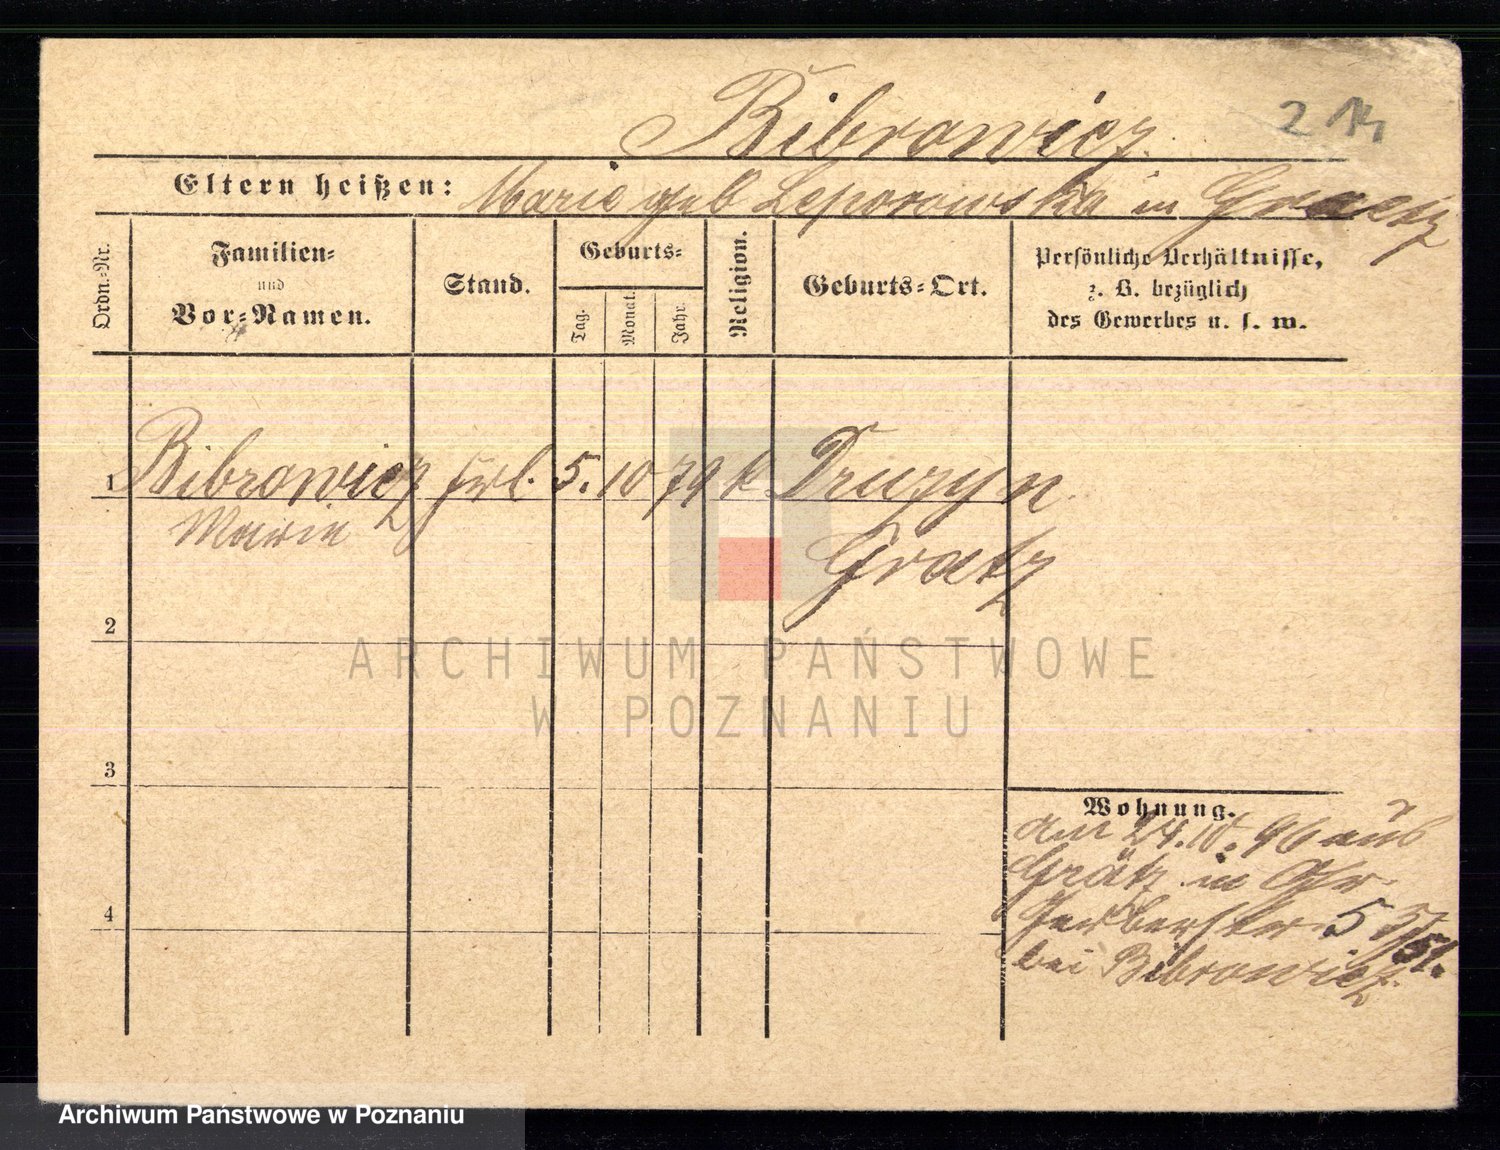 Bibrowicz.
2 14
Eltern heißen: Marie geb Leporowska in Graetz
Ordn.-Nr.
Familien-
und
Vor-Namen.
Stand.
Geburts-
Tag.
Monat.
Jahr.
Religion.
Geburts-Ort.
Persönliche Verhältnisse,
z. B. bezüglich
des Gewerbes u. s. w.
1 Bibrowicz Frl. 5. 10 79 k. Druzyn
Marie
Gratz
2
ARCHIWUM PAŃSTWOWE
W POZNANIU
3
Wohnung.
am 24.10.96 aus
Grätz in Gr
Gerberstr 5
bei Bibrowicz.
4
Archiwum Państwowe w Poznaniu